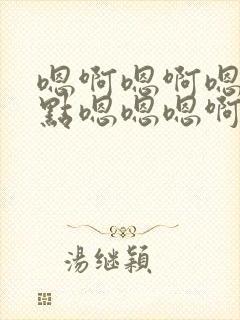 嗯啊嗯啊嗯
點嗯嗯嗯啊
湯继穎